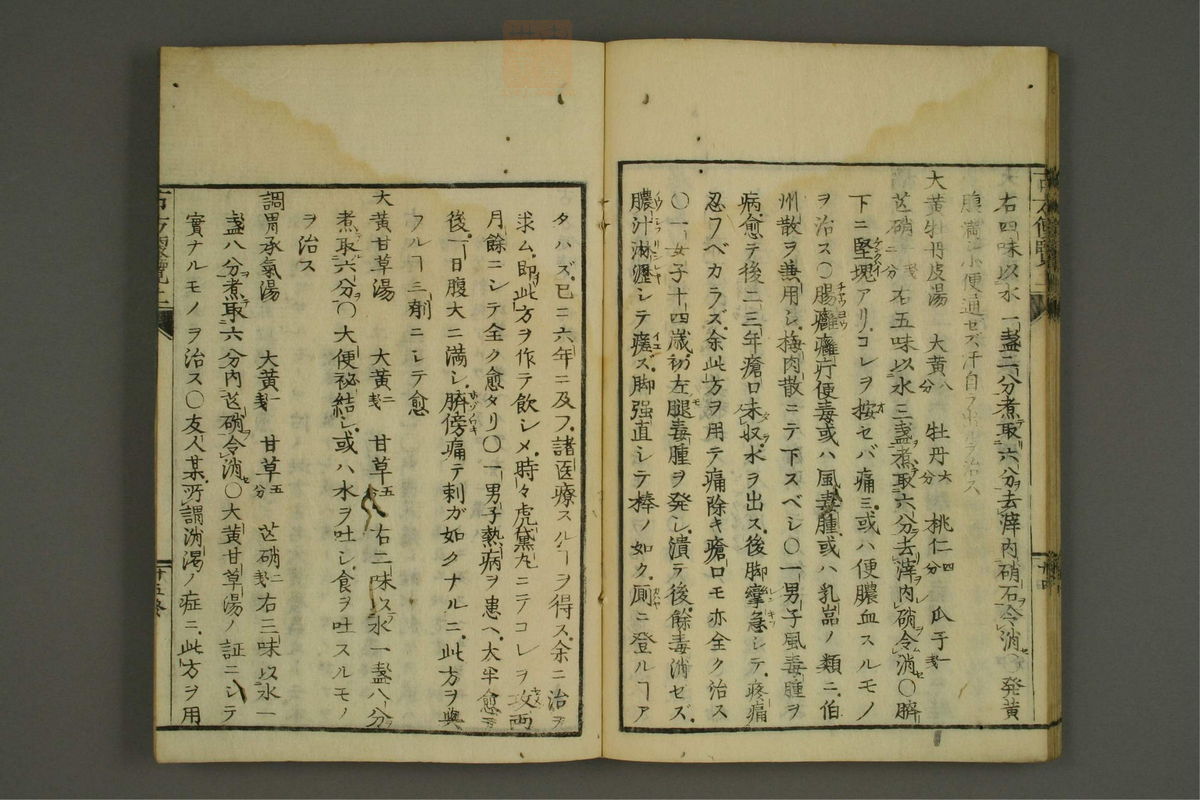 右四味以水一盞二分煮取六分去滓内硝石令消 発黄
腹満小便通セズ汗自ラ出ルヲ治ス
大黄牡丹皮湯 大黄八分 牡丹六分 桃仁四分 瓜子一戔
芒硝二戔二分 右五味以水三盞煮取六分去滓内硝令消〇臍
下ニ堅塊アリコレヲ按セバ痛三或ハ便膿血スルモノ
ヲ治ス〇腸癰癰疔便毒或ハ風毒腫或ハ乳岩ノ類ニ伯
州散ヲ兼用シ梅肉散ニテ下スベシ〇一男子風毒腫ヲ
病愈テ後二三年瘡口未収水ヲ出ス後脚攣急シテ疼痛
忍フベカラズ余此方ヲ用テ痛除キ瘡口モ亦全ク治ス
〇一女子十四歳初左腿毒腫ヲ発シ潰テ後餘毒消セズ
膿汁淋瀝シテ瘥ズ脚强直シテ棒ノ如ク厠ニ登ルヿア
タハズ已ニ六年ニ及フ諸医療スルヿヲ得ス余ニ治ヲ
求ム即此方ヲ作テ飲シメ時々虎黛丸ニテコレヲ攻両
月餘ニシテ全ク愈タリ〇一男子熱病ヲ患ヘ大半愈テ
後一日腹大ニ満シ臍傍痛テ刺ガ如クナルニ此方ヲ與
フルヿ三劑ニシテ愈
大黄甘草湯 大黄二戔 甘草五分 右二味以水一盞八分
煮取六分〇大便祕結シ或ハ水ヲ吐シ食ヲ吐スルモノ
ヲ治ス
調胃承氣湯 大黄一戔 甘草五分 芒硝二戔 右三味以水一
盞八分煮取六分内芒硝令消〇大黄甘草湯ノ証ニシテ
實ナルモノヲ治ス〇友人某所謂消渇ノ症ニ此方ヲ用